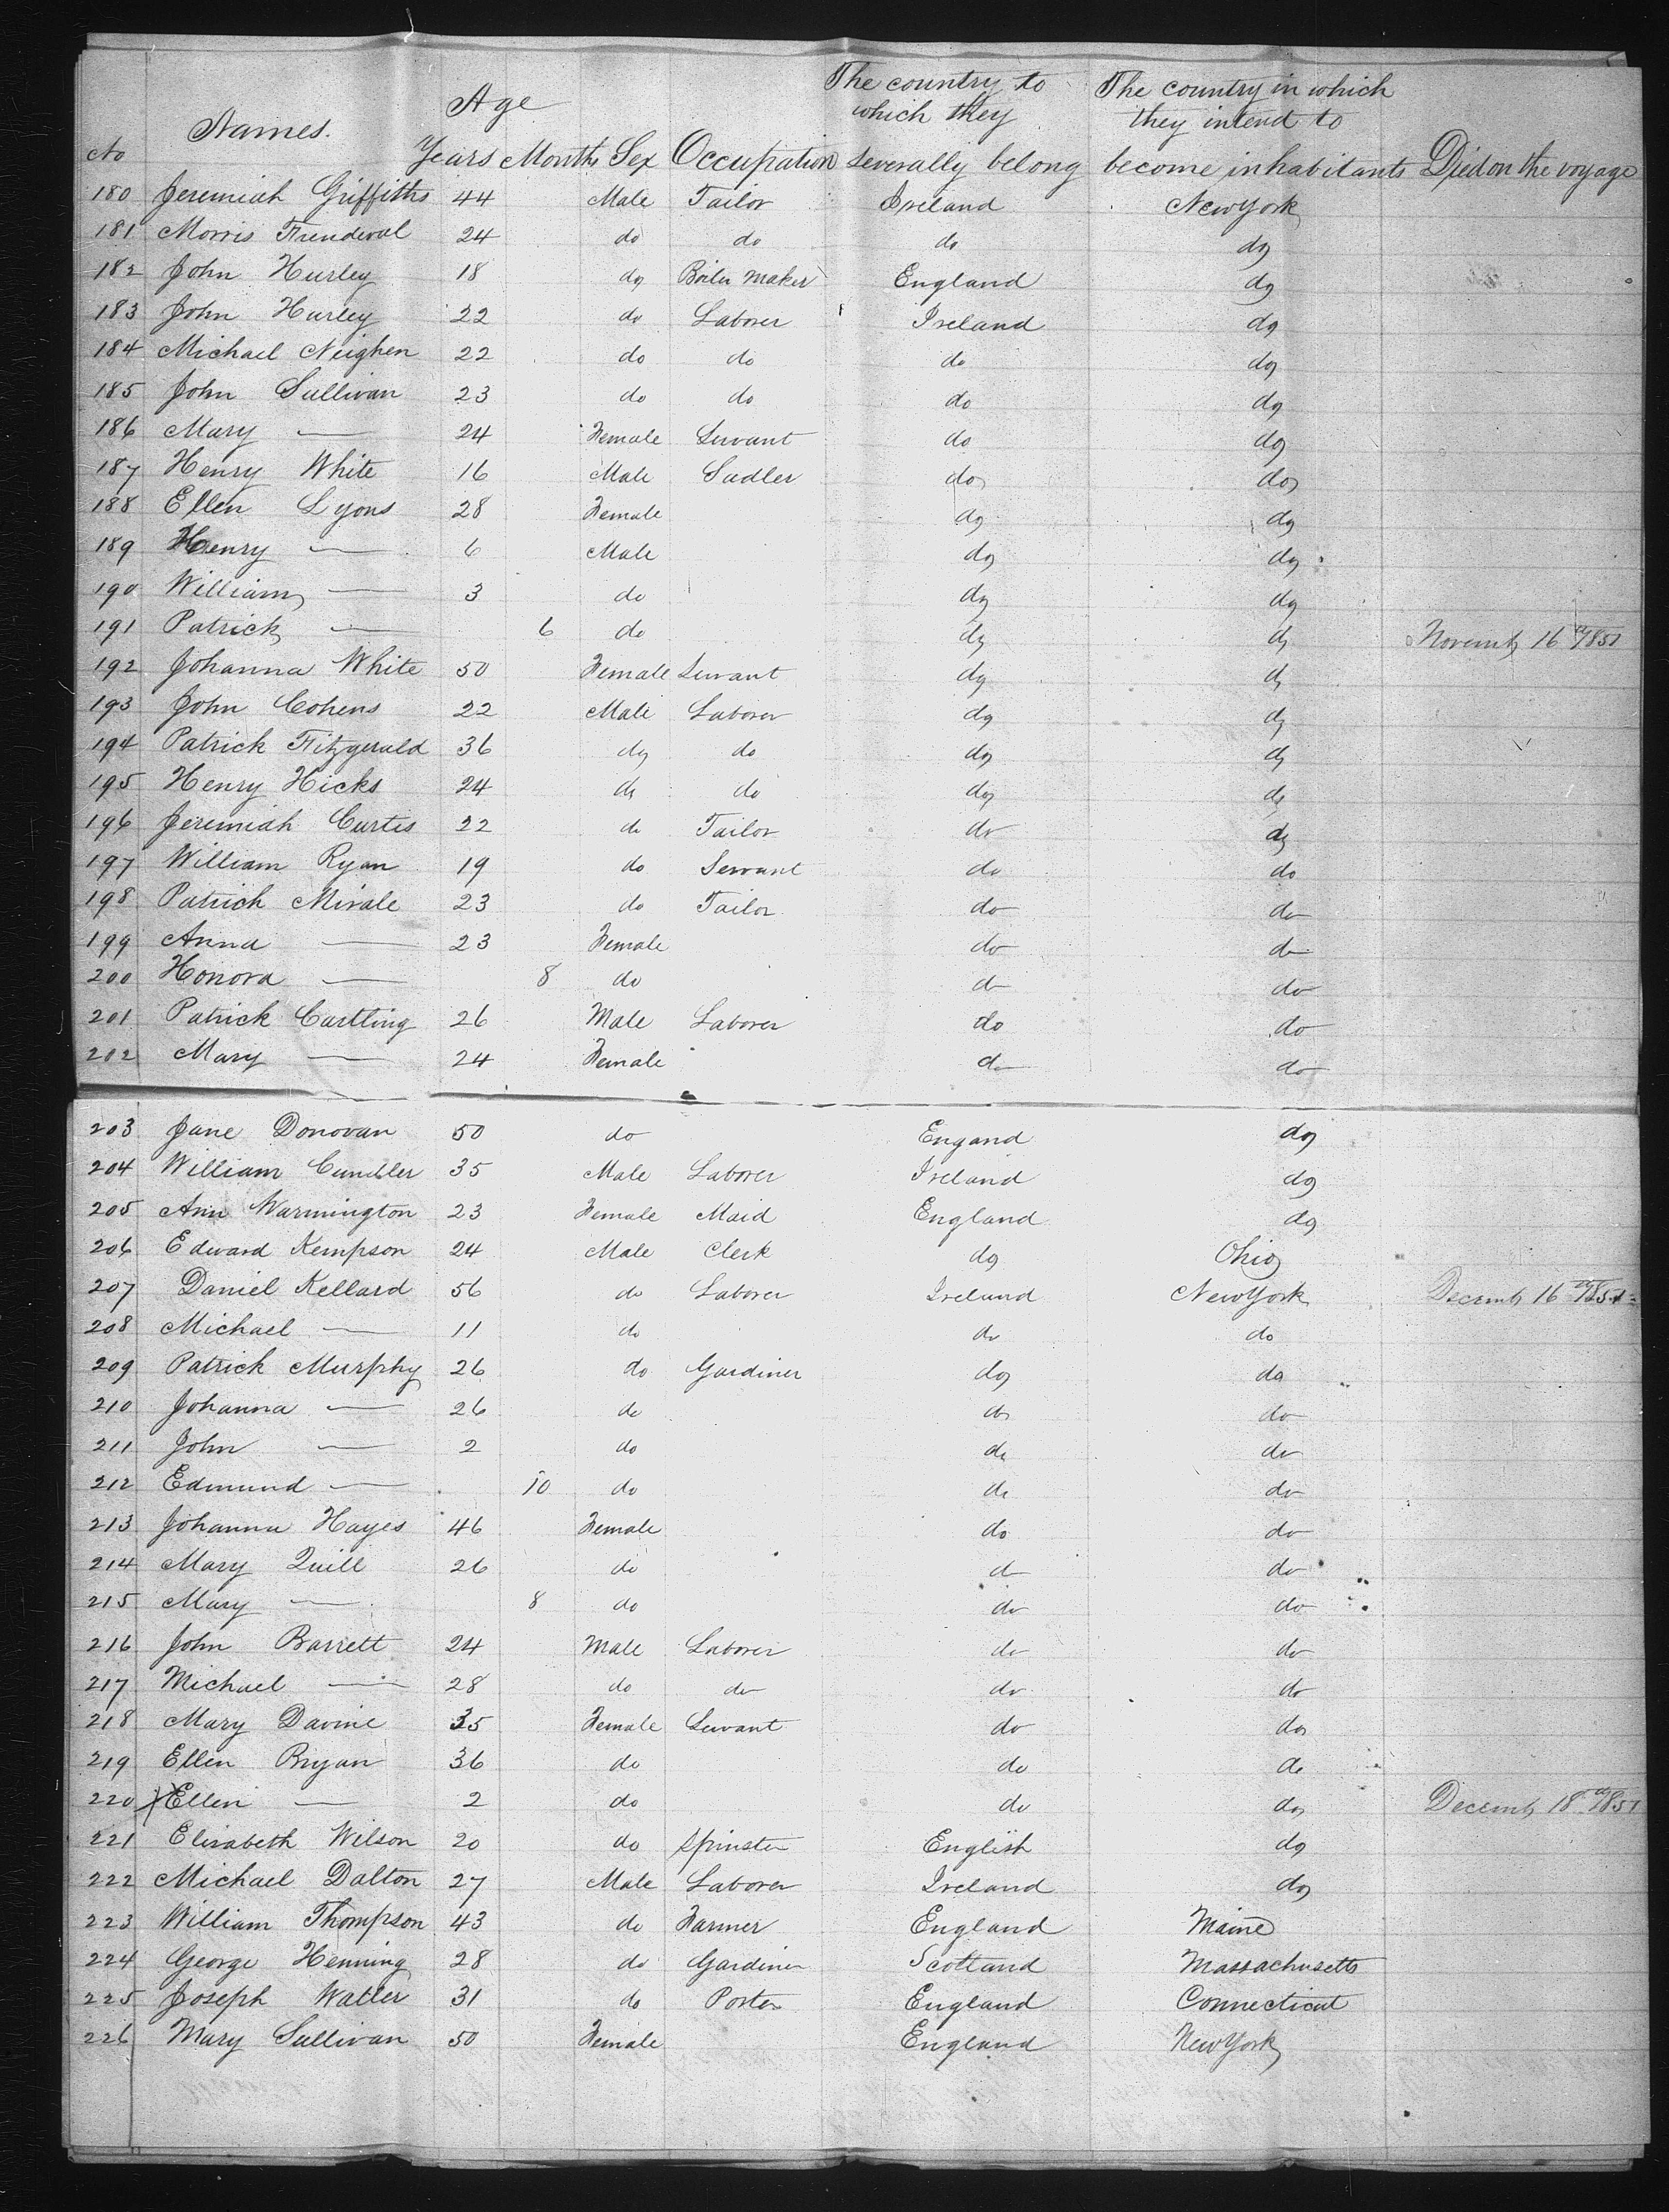 The country to The country in which
Age which they they intend to
No Names. Years Months Sex Occupation severally belong become inhabitants Died on the voyage
180 Jeremiah Griffiths 44 Male Tailor Ireland New York
181 Morris 24 do do do do
182 John Hurley 18 do Boiler Maker England do
183 John Hurley 22 do Laborer Ireland do
184 Michael Neighen 22 do do do do
185 John Sullivan 23 do do do do
186 Mary — 24 Female Servant do do
187 Henry White 16 Male Sadler do do
188 Ellen Lyons 28 Female do do
189 Henry — 6 Male do do
190 William — 3 do do do
191 Patrick — 6 do do do Novemb 16th 1851
192 Johanna White 50 Female Servant do do
193 John Cohens 22 Male Laborer do do
194 Patrick Fitzgerald 36 do do do do
195 Henry Hicks 24 do do do do
196 Jeremiah Curtis 22 do Tailor do do
197 William Ryan 19 do Servant do do
198 Patrick Mirale 23 do Tailor do do
199 Anna — 23 Female do do
200 Honora — 8 do do do
201 Patrick Cartling 26 Male Laborer do do
202 Mary — 24 Female do do
203 Jane Donovan 50 do Engand do
204 William 35 Male Laborer Ireland do
205 Ann Warmington 23 Female Maid England do
206 Edward Kempson 24 Male Clerk do Ohio
207 Daniel Kellard 56 do Laborer Ireland New York Decemb 16th 1851
208 Michael — 11 do do do
209 Patrick Murphy 26 do Gardiner do do
210 Johanna — 26 do do do
211 John — 2 do do do
212 Edmund — 10 do do do
213 Johanna Hayes 46 Female do do
214 Mary Quill 26 do do do
215 Mary — 8 do do do
216 John Barrett 24 Male Laborer do do
217 Michael — 28 do do do do
218 Mary Davine 35 Female Servant do do
219 Ellen Bryan 36 do do do
220 X Ellen — 2 do do do Decemb 18th 1851
221 Elisabeth Wilson 20 do Spinster English do
222 Michael Dalton 27 Male Laborer Ireland do
223 William Thompson 43 do Farmer England Maine
224 George Henning 28 do Gardiner Scotland Massachusetts
225 Joseph Waller 31 do Porter England Connecticut
226 Mary Sullivan 50 Female England New York